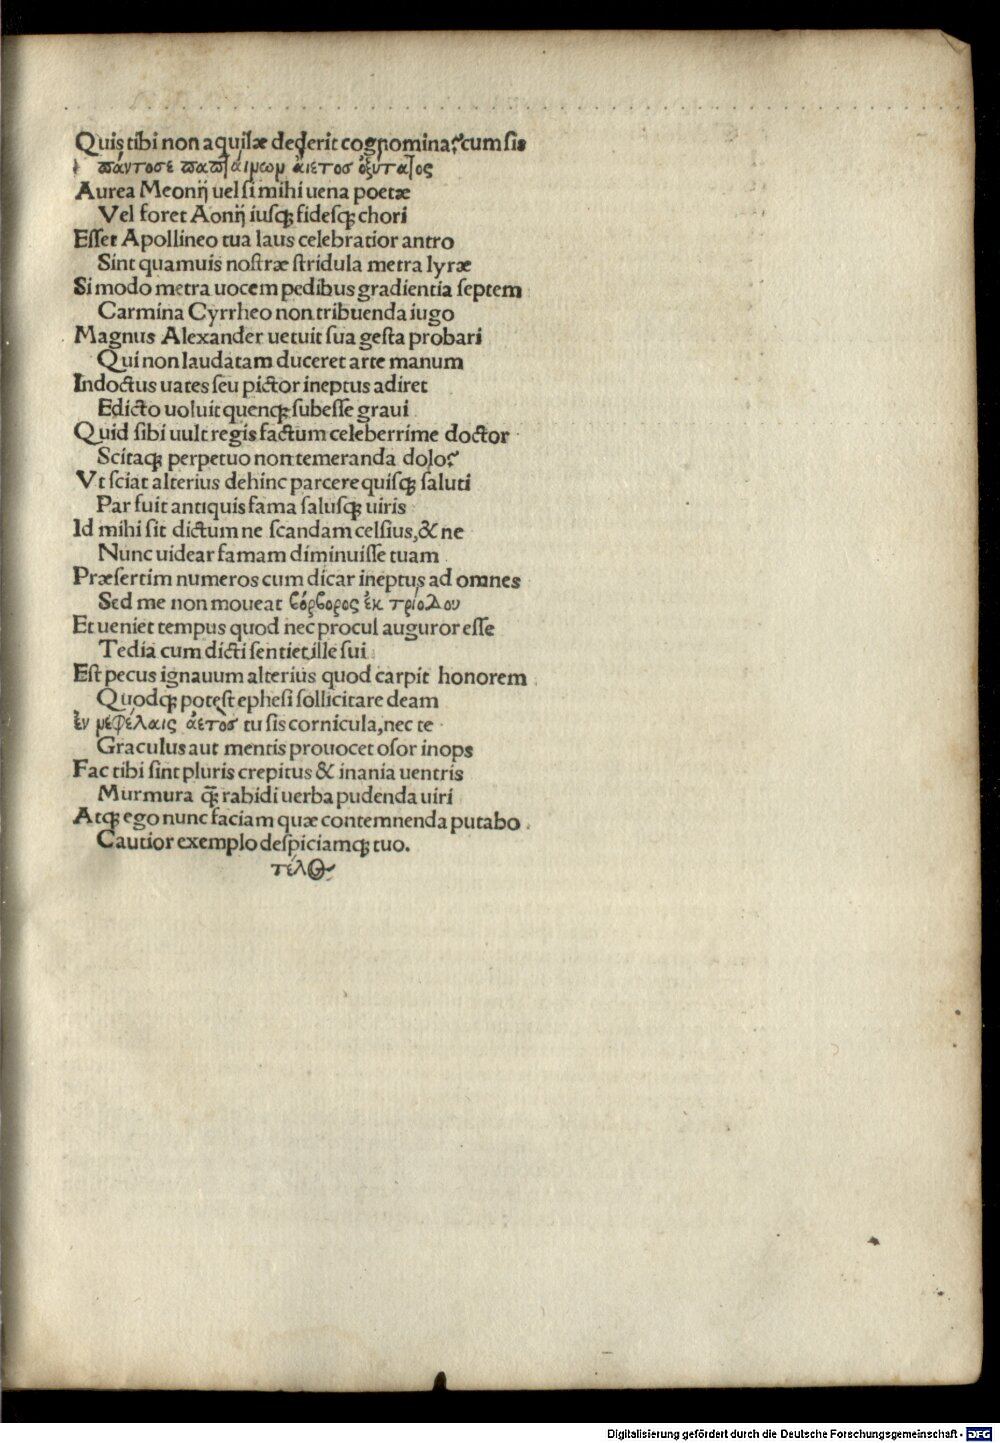 Quis tibi non aquilæ dederit cognomina? cum sis
πάντοσε παπταίνων αἰετος ὀξύτατος
Aurea Meonij uel si mihi uena poetæ
Vel foret Aonij iusq; fidesq; chori
Esset Apollineo tua laus celebratior antro
Sint quamuis nostræ stridula metra lyræ
Si modo metra uocem pedibus gradientia septem
Carmina Cyrrheo non tribuenda iugo
Magnus Alexander uetuit sua gesta probari
Qui non laudatam duceret arte manum
Indoctus uates seu pictor ineptus adiret
Edicto uoluit quenq; subesse graui
Quid sibi uult regis factum celeberrime doctor
Scitaq; perpetuo non temeranda dolo?
Vt sciat alterius dehinc parcere quisq; saluti
Par fuit antiquis fama salusq; uiris
Id mihi sit dictum ne scandam celsius, & ne
Nunc uidear famam diminuisse tuam
Præsertim numeros cum dicar ineptus ad omnes
Sed me non moueat βόρβορος ἐκ τριόδου
Et ueniet tempus quod nec procul auguror esse
Tedia cum dicti sentiet ille sui
Est pecus ignauum alterius quod carpit honorem
Quodq; potest ephesi sollicitare deam
ἐν νεφέλαις ἀετος tu sis cornicula, nec te
Graculus aut mentis prouocet osor inops
Fac tibi sint pluris crepitus & inania uentris
Murmura q̃; rabidi uerba pudenda uiri
Atq; ego nunc faciam quæ contemnenda putabo
Cautior exemplo despiciamq; tuo.
τέλος
Digitalisierung gefördert durch die Deutsche Forschungsgemeinschaft - DFG